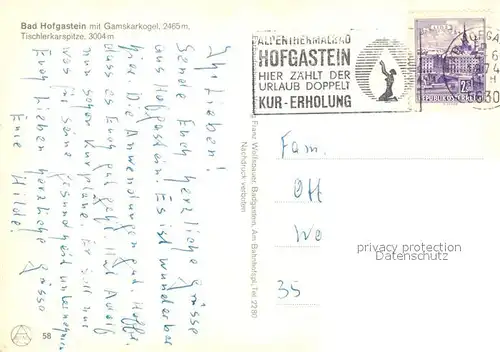 Bad Hofgastein mit Gamskarkogel, 2465m,
Tischlerkarspitze, 3004m
ALPENTHERMALBAD
HOFGASTEIN
HIER ZÄHLT DER
URLAUB DOPPELT
KUR-ERHOLUNG
5630
REPUBLIK ÖSTERREICH
Ihr Lieben!
Sende Euch herzliche Grüsse
aus Hofgastein. Es ist wunderbar
hier. Die Anwendungen gut. Hoffe,
dass es Euch gut geht. Hat Adolf
nun schon Kurpläne. Er soll nur
was für seine Gesundheit unternehmen
Euch Lieben herzliche Grüsse
Eure Hilde!
Franz Wolfsbauer, Badgastein, Am Bahnhofspl., Tel. 2280
Nachdruck verboten
Fam.
Ott
We
35
privacy protection
Datenschutz
58